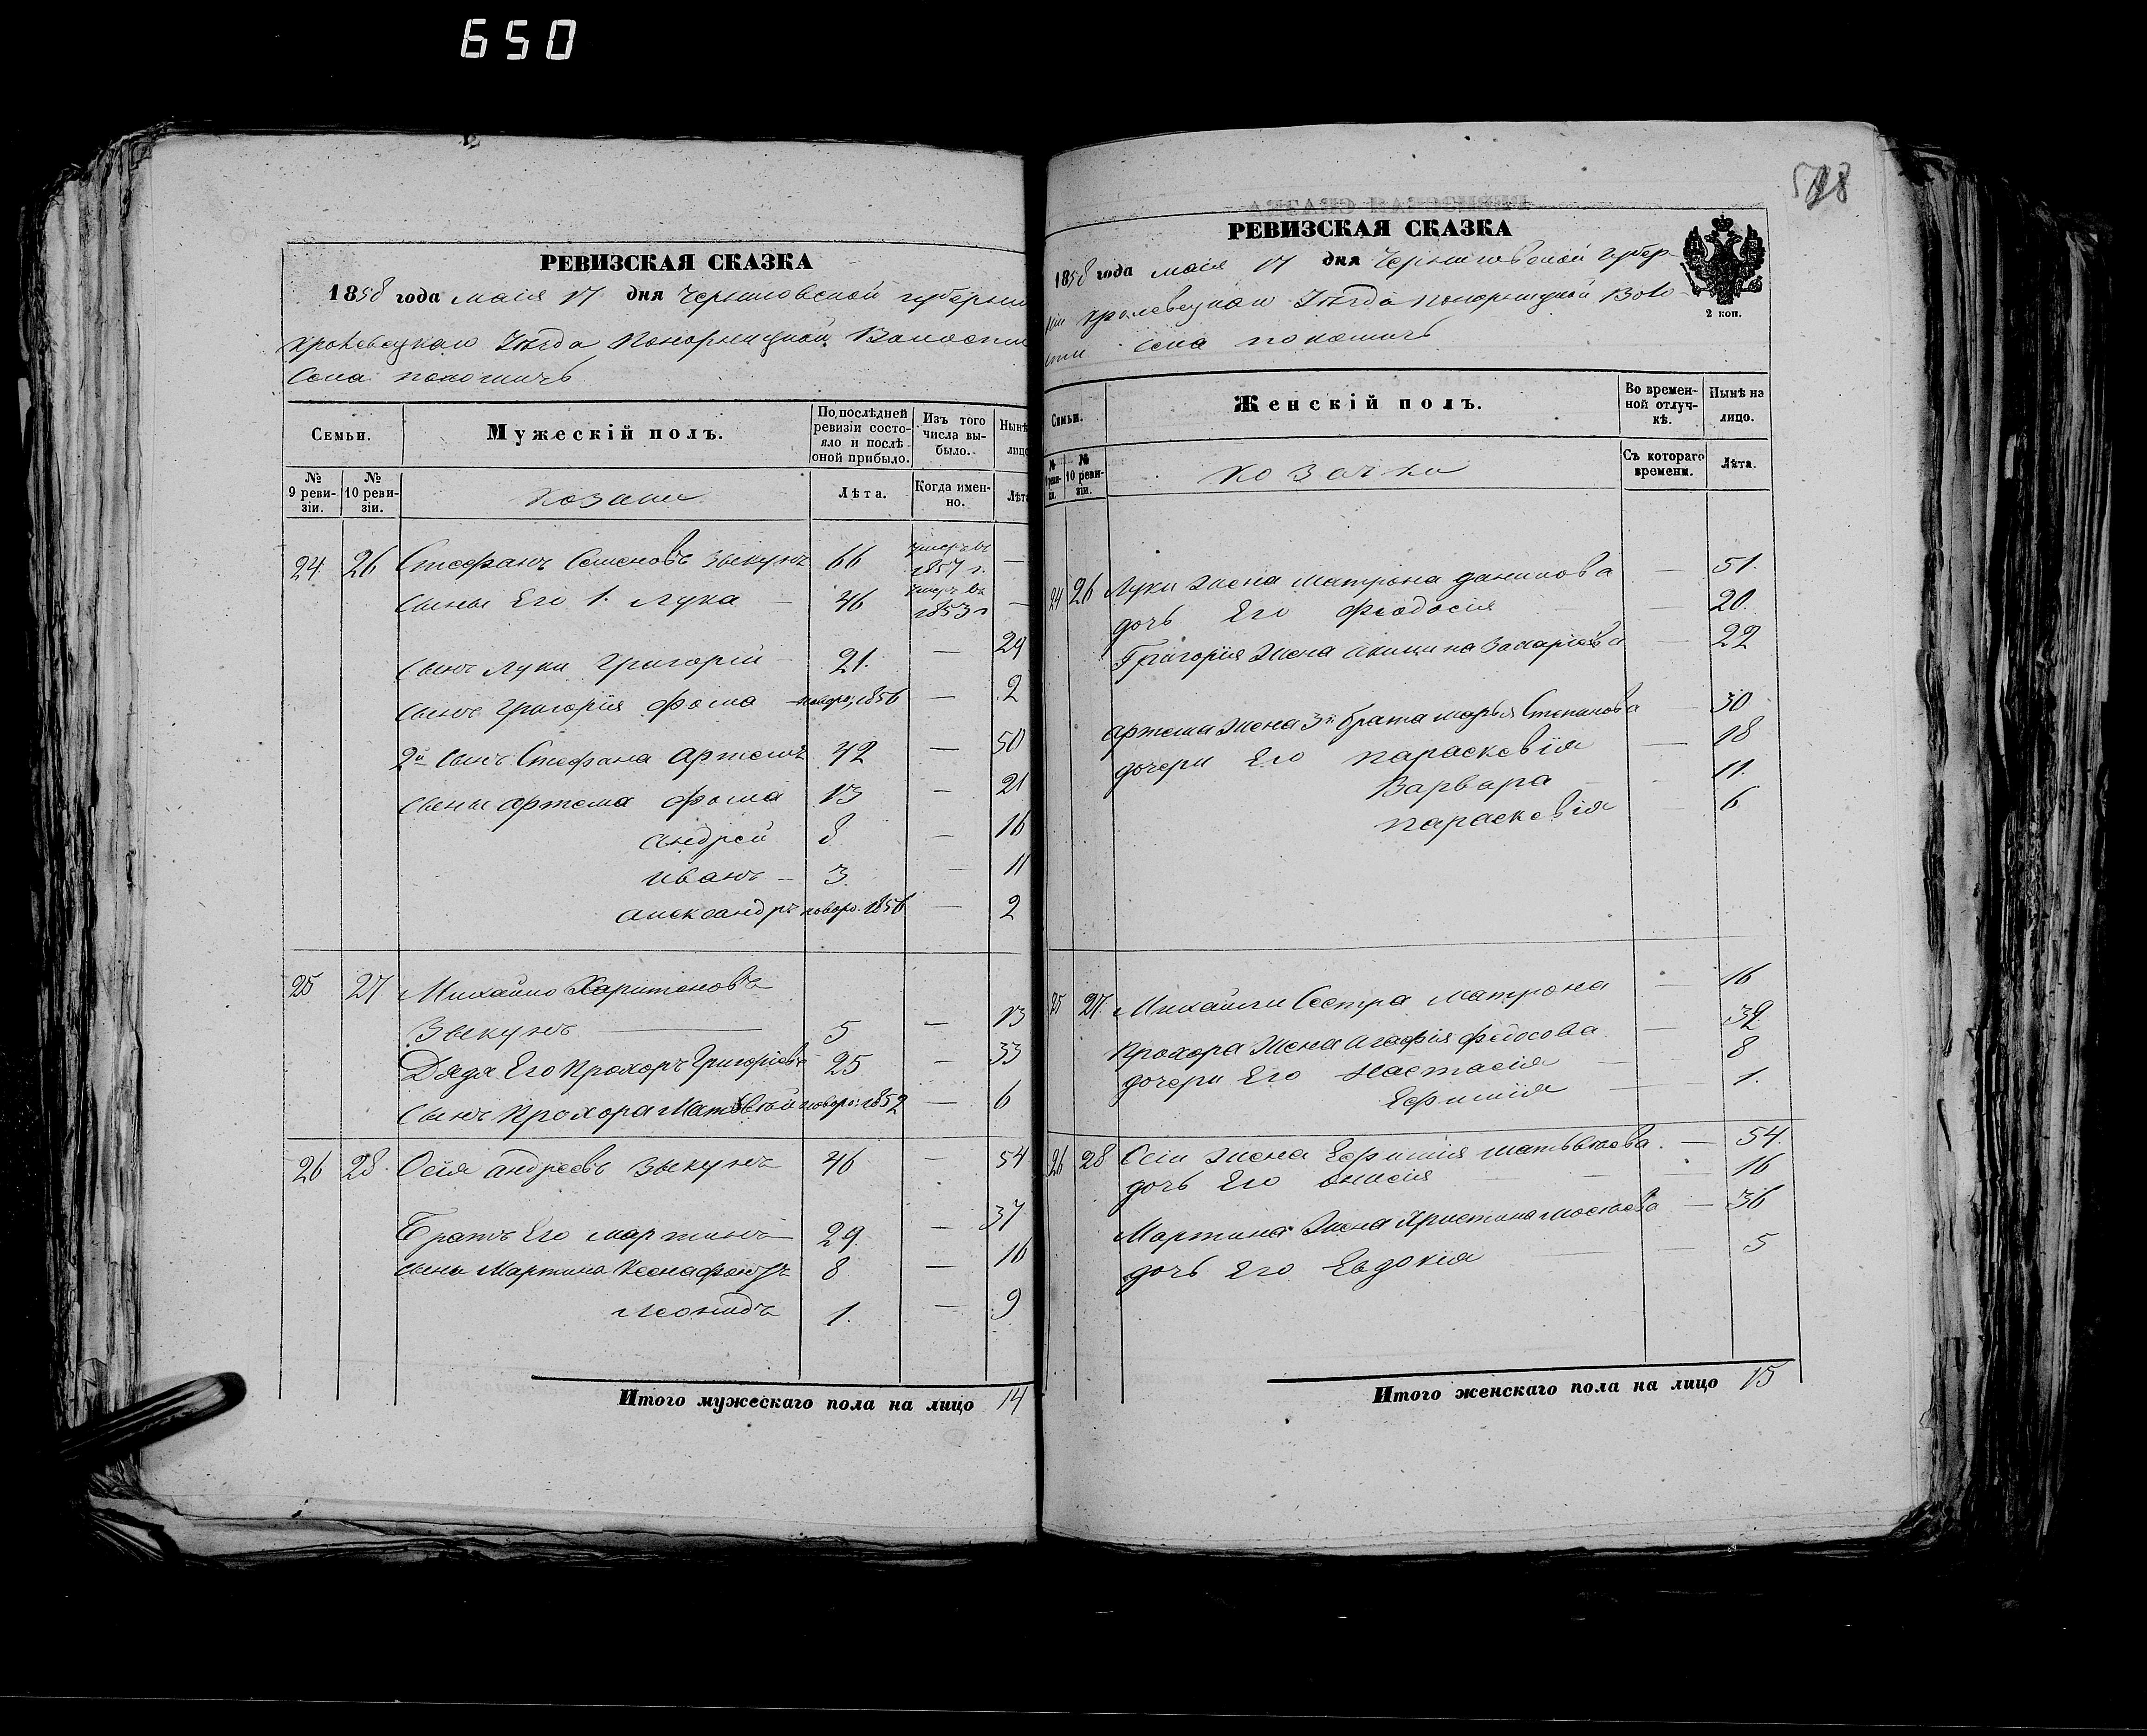 650
518
РЕВИЗСКАЯ СКАЗКА
1858 года маія 17 дня Черниговской губерніи
Кролевецкаго Уѣзда Понорницкой Волости
Села Покошичь
Семьи.
Мужескій полъ.
По послѣдней ревизіи состояло и послѣ оной прибыло.
Изъ того числа выбыло.
Нынѣ лицо
№ 9 ревизіи.
№ 10 ревизіи.
Козаки
Лѣта.
Когда именно.
Лѣта
24 26 Стефанъ Семеновъ Зыкунъ 66 умеръ въ 1857 г. —
сыны Его 1. Лука — 46 умеръ въ 1853 г —
сынъ Луки Григорій — 21. — 29
сынъ Григорія Фома — новоро: 1856 — 2
2й сынъ Стефана Артемъ 42 — 50
сыны Артема Фома 13 — 21
Андрей 8 — 16
Иванъ — 3. — 11
Александръ новоро. 1856 — 2
25 27 Михайло Харитоновъ
Зыкунъ — 5 — 13
Дядя Его Прохоръ Григорьевъ 25 — 33
Сынъ Прохора Матвѣй новоро: 1852 — 6
26 28. Осія Андреевъ Зыкунъ 46 — 54
Братъ Его Мартинъ 29. — 37
сыны Мартина Ксенафонтъ 8 — 16
Леонидъ 1. — 9
Итого мужескаго пола на лицо 14
РЕВИЗСКАЯ СКАЗКА
1858 года маія 17 дня Черниговской губер-
ніи Кролевецкаго Уѣзда Понорницкой Воло-
сти Села Покошичь
2 коп.
Семьи.
Женскій полъ.
Во временной отлучкѣ.
Нынѣ на лицо.
№ 9 ревизіи.
№ 10 ревизіи.
Козачки
Съ котораго времени.
Лѣта.
24 26 Луки жена Матрона Данилова — 51.
дочь Его Феодосія 20.
Григорія жена Акилина Захаріева — 22
Артема жена 3й брата Марья Степанова — 30
дочери Его Параскевія — 18
Варвара — 11.
Параскевія — 6
25 27. Михайли Сестра Матрона — 16
Прохора жена Агафія Федосова — 32
дочери Его Настасія — 8
Ефимія — 1.
26 28 Осіи жена Ефимія Матвѣева. — 54.
дочь Его Анисія — 16
Мартина жена Христина — 36
дочь Его Евдокія — 5
Итого женскаго пола на лицо 15